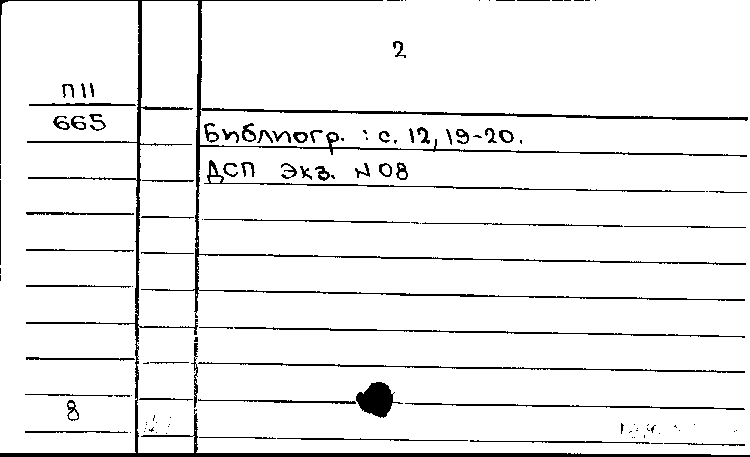 2
П11
665
Библиогр. : с. 12, 19-20.
ДСП Экз. N 08
8